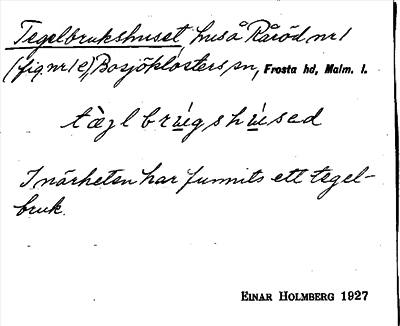 Tegelbrukshuset, hus å Råröd nr 1
(fig. nr 1 e), Bosjöklosters sn, Frosta hd, Malm. l.
tæ̀gl brúgshúsəd
I närheten har funnits ett tegel-
bruk.
EINAR HOLMBERG 1927